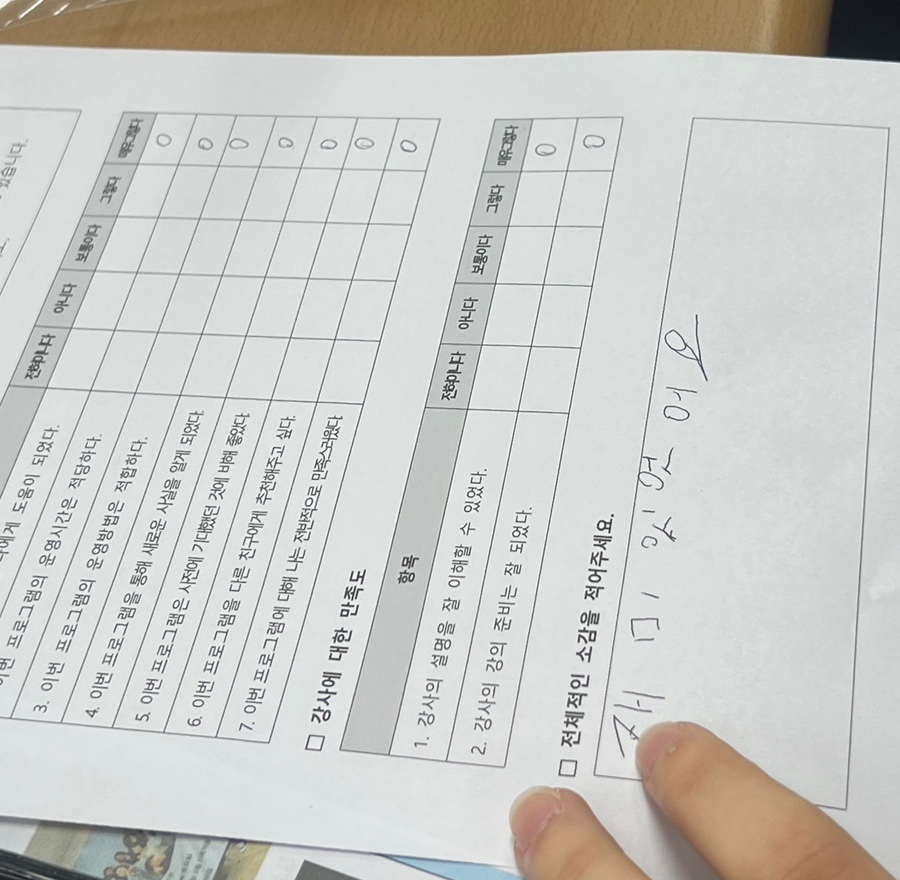 있습니다.
전혀아니다 아니다 보통이다 그렇다 매우그렇다
에게 도움이 되었다. 0
3. 이번 프로그램의 운영시간은 적당하다. 0
4. 이번 프로그램의 운영방법은 적합하다. 0
5. 이번 프로그램을 통해 새로운 사실을 알게 되었다. 0
6. 이번 프로그램은 사전에 기대했던 것에 비해 좋았다 0
7. 이번 프로그램을 다른 친구에게 추천해주고 싶다. 0
이번 프로그램에 대해 나는 전반적으로 만족스러웠다 0
□ 강사에 대한 만족도
항목 전혀아니다 아니다 보통이다 그렇다 매우그렇다
1. 강사의 설명을 잘 이해할 수 있었다. 0
2. 강사의 강의 준비는 잘 되었다. 0
□ 전체적인 소감을 적어주세요.
재미있었어요